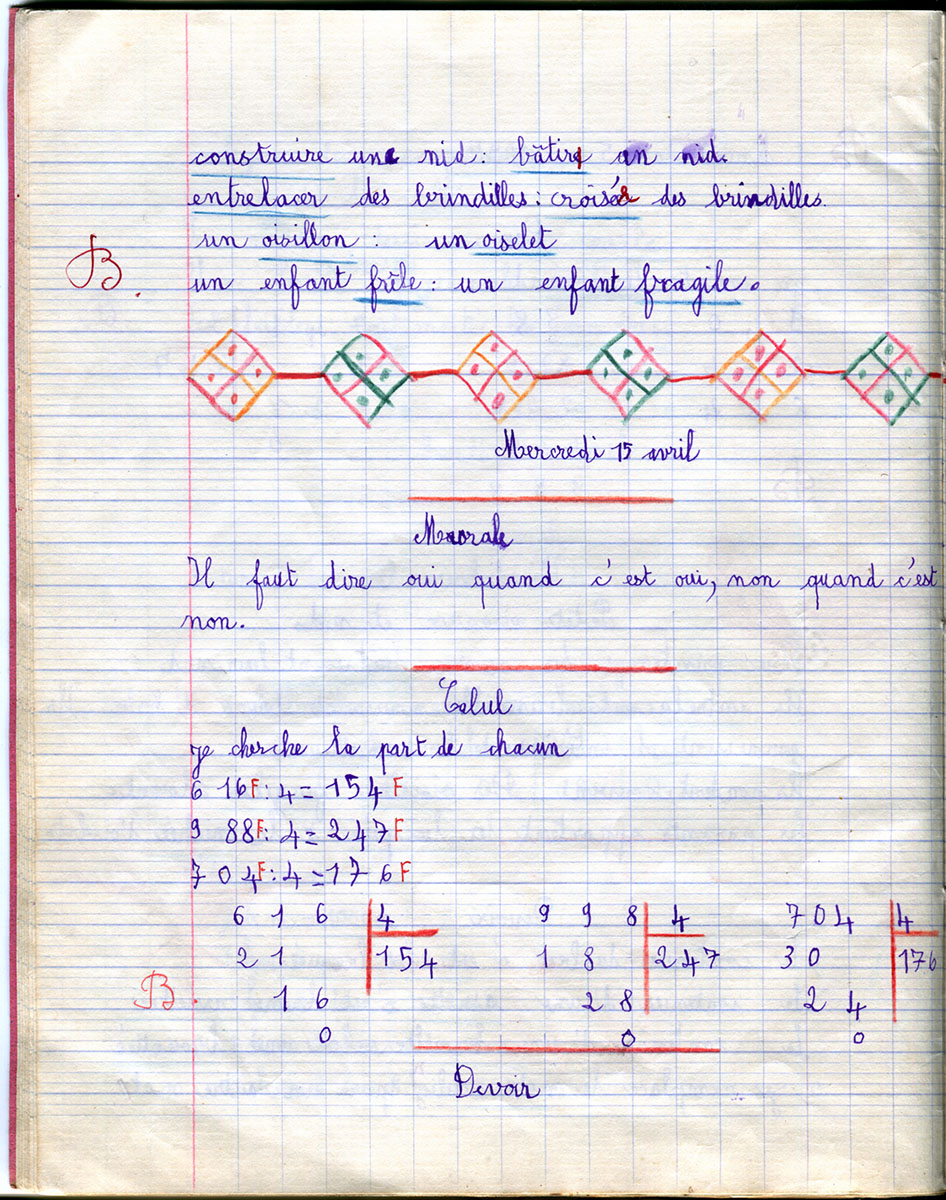 construire une nid : bâtir un nid.
entrelacer des brindilles : croiser des brindilles.
un oisillon : un oiselet
B.
un enfant frêle : un enfant fragile.
Mercredi 15 avril
Morale
Il faut dire oui quand c'est oui, non quand c'est
non.
Calul
je cherche la part de chacun
6 16F : 4 = 154 F
9 88F : 4 = 247F
7 04F : 4 = 176F
6 1 6 4 9 9 8 4 704 4
2 1 154 1 8 247 30 176
B. 1 6 2 8 2 4
0 0 0
Devoir